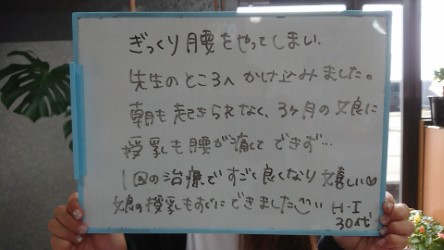 ぎっくり腰をやってしまい、
先生のところへかけ込みました。
朝も起きられなく、3ヶ月の娘に
授乳も腰が痛くてできず…
1回の治療ですごく良くなり嬉しい♡
娘の授乳もすぐにできました
H・I
30代